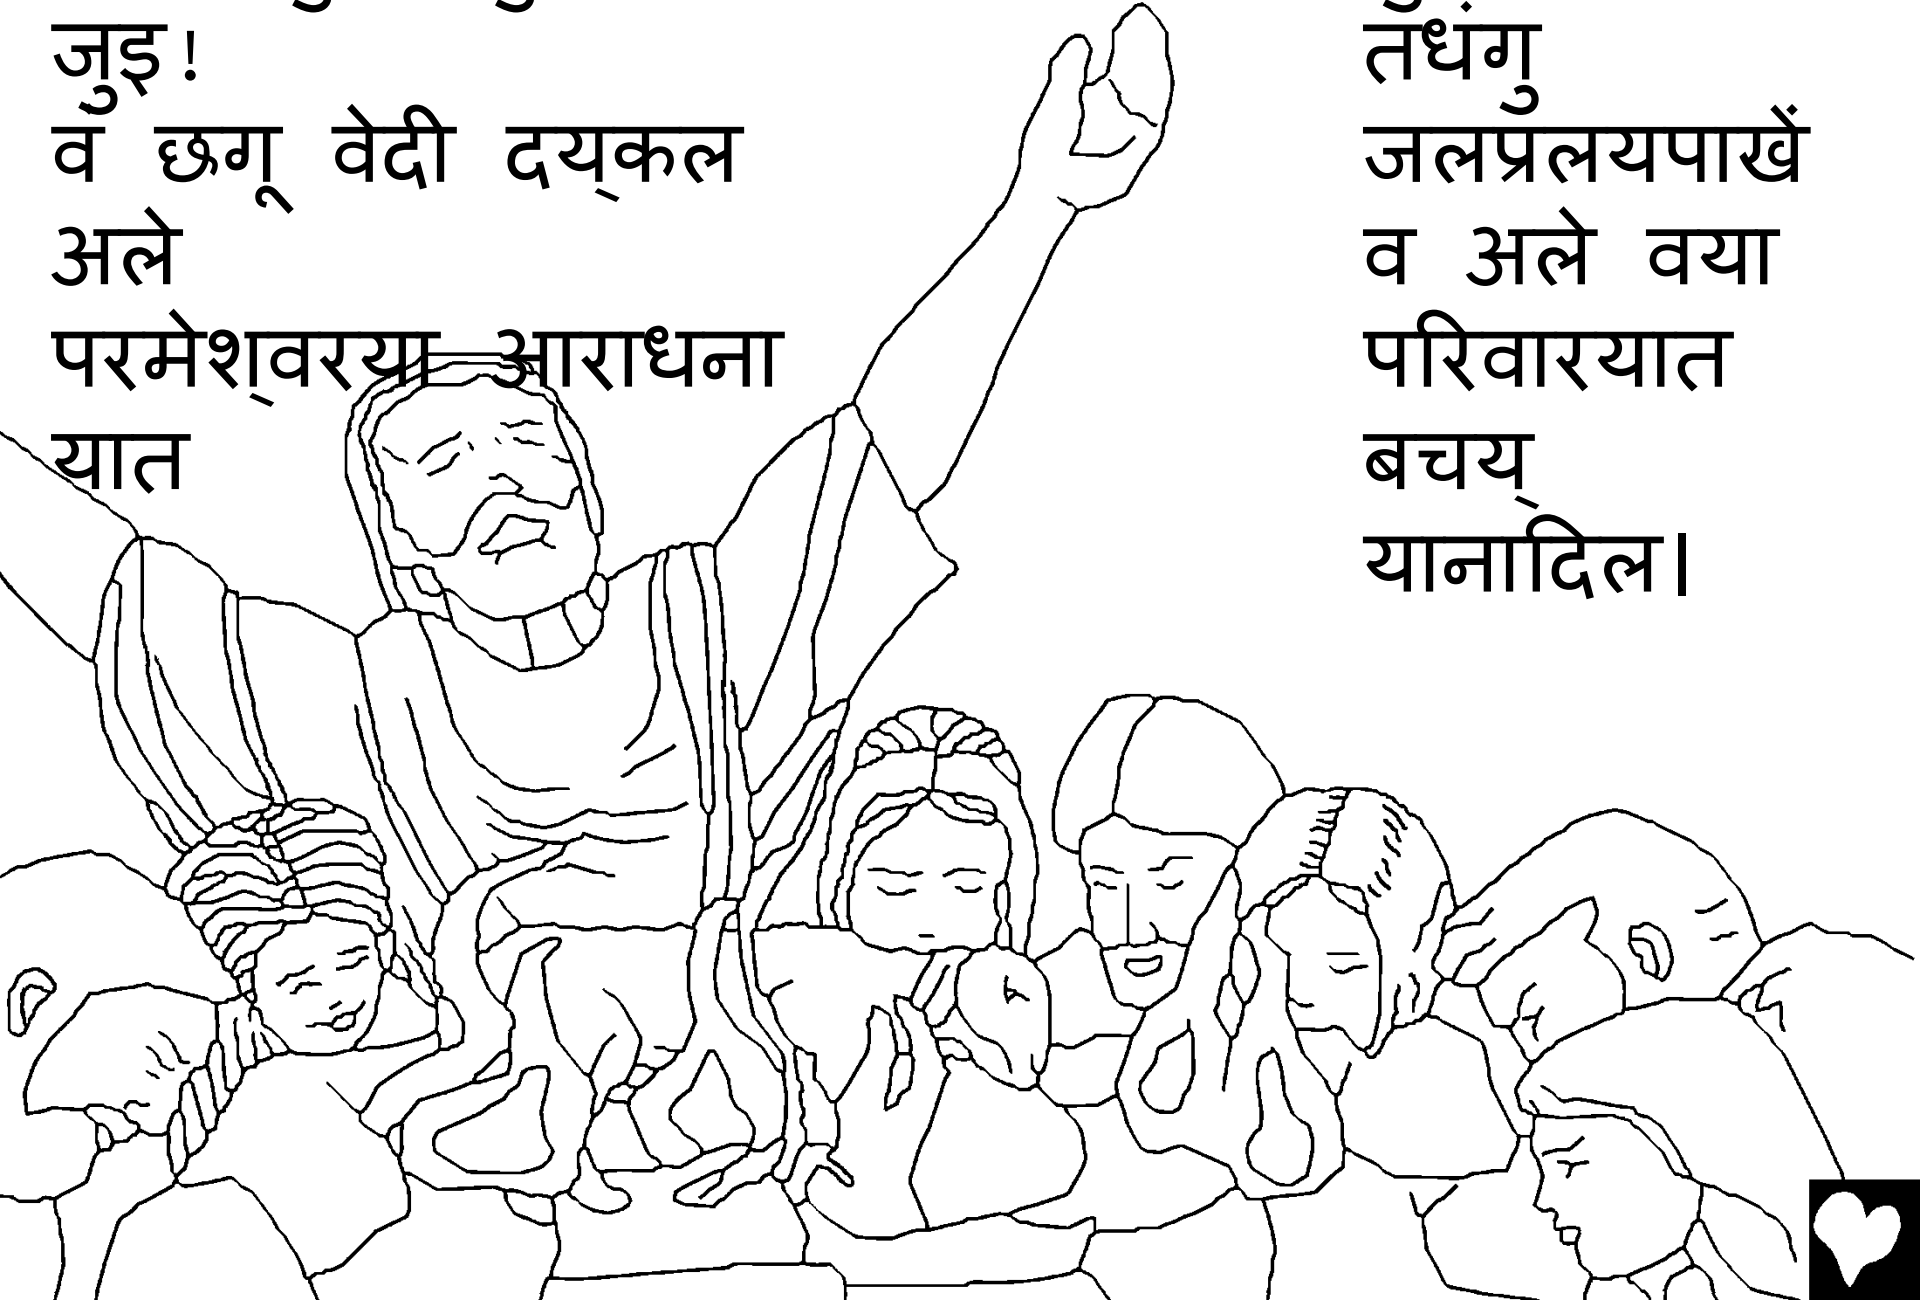 जुइ!
वं छगू वेदी दय्‌कल
अले
परमेश्‌वरया आराधना
यात
तधंगु
जलप्रलयपाखें
व अले वया
परिवारयात
बचय्‌
यानादिल।